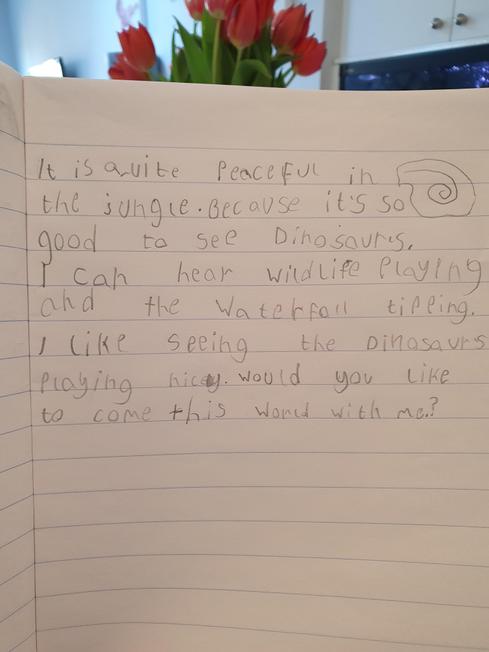 It is quite Peaceful in
the jungle. Because it's so
good to see Dinosaurs.
I can hear wildlife Playing
and the Waterfall tipping.
I like seeing the Dinosaurs
Playing nicey. Would you like
to come this world with me.?